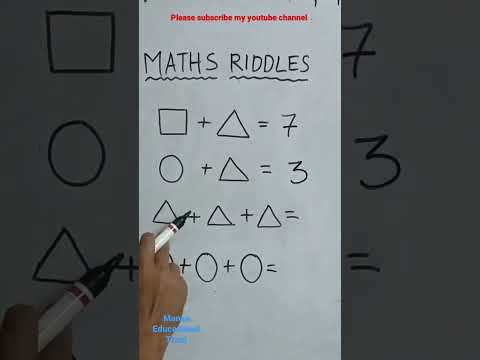 Please subscribe my youtube channel
MATHS RIDDLES
□ + △ = 7
○ + △ = 3
△ + △ + △ =
+ ○ + ○ =
Educational